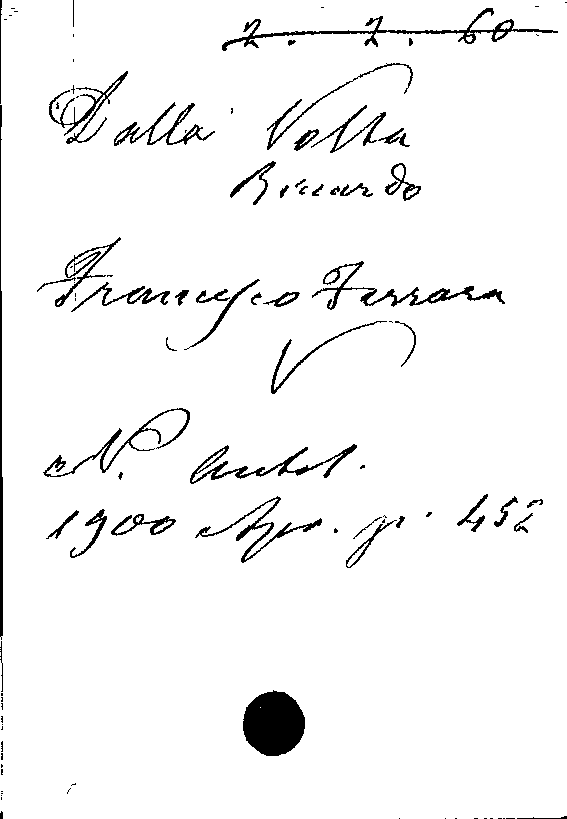 2. 2. 60
Dalla Volta
Riccardo
Francesco Ferrara
V
N. Antol.
1900 Apr. gr. 452